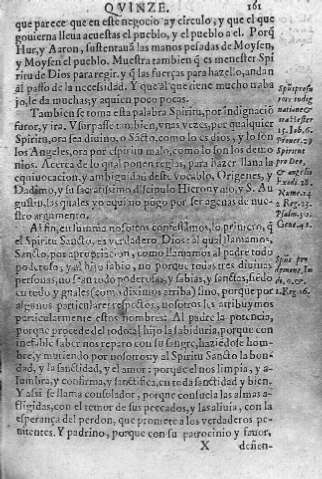 QVINZE. 161
que parece que en este negocio ay circulo, y que el que
gouierna lleua acuestas el pueblo, y el pueblo a el. Porq̃
Hur, y Aaron, sustentauã las manos pesadas de Moysen,
y Moysen el pueblo. Muestra tambien q̃ es menester Spi
ritu de Dios para regir, y q̃ las fuerças para hazello, andan
al passo de la necessidad. Y que al que tiene mucho traba
jo, le da muchas; y a quien poco pocas.
Tambien se toma esta palabra Spiritu, por indignaciõ
furor, y ira. Vsurpasse tambien, vnas vezes, por qualquier
Spiritu, ora sea diuino, o Sãcto, como lo es dios, y lo son
los Angeles, ora por espiritu malo, como lo son los demo
nios. Acerca de lo qual ponen reglas, para hazer llana la
equiuocacion, y ambiguidad deste vocablo, Origenes, y
Dadimo, y su sacratissimo discipulo Hieronymo, y S. Au
gustin, las quales yo aqui no pago por ser agenas de nue-
stro argumento.
Al fin, en summa nosotros confessamos, lo primero, q̃
el Spiritu Sancto, es verdadero Dios: al qual llamamos,
Sancto, por apropriacion, como llamamos al padre todo
poderoso, y al hijo sabio, no porque todas tres diuinas
personas, no sean todo poderosas, y sabias, y sanctas, siẽdo
en todo yguales (como diximos arriba) sino, porque por
algunos particulares respectos, nosotros les atribuymos
particularmente estos nombres: Al padre la potencia,
porque procede del todo: al hijo la sabiduria, porque con
inefable saber nos reparo con su sangre, haziẽdose hom-
bre, y muriendo por nosotros: y al Spiritu Sancto la bon-
dad, y la sanctidad, y el amor: porque el nos limpia, y a-
lumbra, y confirma, y sanctifica, en toda sanctidad y bien.
Y assi se llama consolador, porque consuela las almas a-
fligidas, con el temor de sus peccados, y las aliuia, con la
esperança del perdon, que promete a los verdaderos pe-
nitentes. Y padrino, porque con su patrocinio y fauor,
X defien-